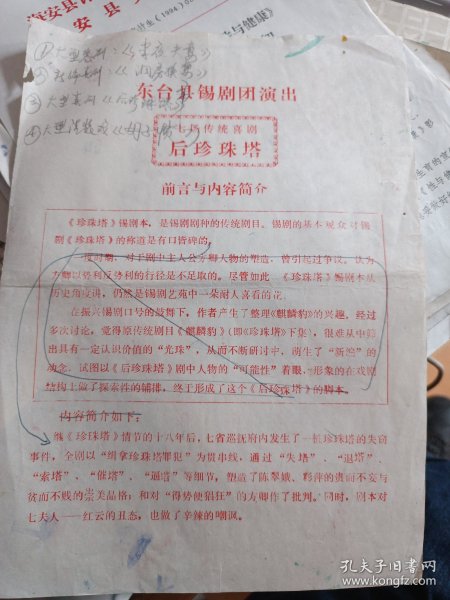 海安县
安县
(1994)
①大型喜剧：《
②
③大型喜剧《后珍珠塔》
④大型
东台县锡剧团演出
七场传统喜剧
后珍珠塔
前言与内容简介
《珍珠塔》锡剧本，是锡剧剧种的传统剧目。锡剧的基本观众对锡
剧《珍珠塔》的称道是有口皆碑的。
一度时期，对于剧中主人公方卿人物的塑造，曾引起过争议。认为
方卿以势利反势利的行径是不足取的。尽管如此，《珍珠塔》锡剧本从
历史角度讲，仍然是锡剧艺苑中一朵耐人喜看的花。
在振兴锡剧口号的鼓舞下，作者产生了整理《麒麟豹》的兴趣，经过
多次讨论，觉得原传统剧目《麒麟豹》(即《珍珠塔》下集)，很难从中筛
出具有一定认识价值的“光珠”，从而不断研讨中，萌生了“新挖”的
动念，试图以《后珍珠塔》剧中人物的“可能性”着眼，形象的在戏剧
结构上做了探索性的铺排，终于形成了这个《后珍珠塔》的脚本。
内容简介如下：
继《珍珠塔》情节的十八年后，七省巡抚府内发生了一桩珍珠塔的失窃
事件，全剧以“缉拿珍珠塔罪犯”为贯串线，通过“失塔”、“退塔”、
“索塔”、“催塔”、“逼塔”等细节，塑造了陈翠娥、彩萍的贵而不妄与
贫而不贱的崇美品格；和对“得势便猖狂”的方卿作了批判。同时，剧本对
七夫人——红云的丑态，也做了辛辣的嘲讽。
孔夫子旧书网
www.kongfz.com